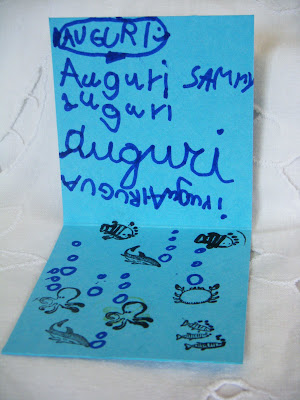 AUGURI
Auguri SAMMY
auguri
auguri
AUGURI Auguri